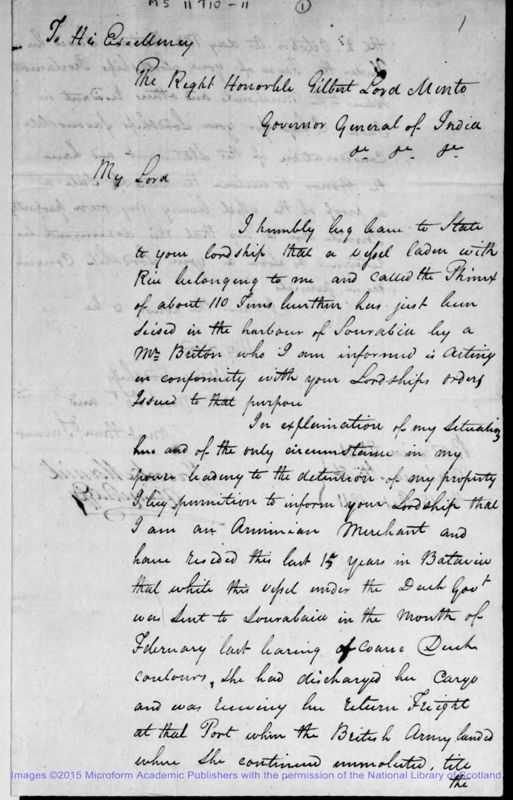 MS 11710-11
1
1
To His Excellency
The Right Honorble Gilbert Lord Minto
Governor General of India
&c &c &c
My Lord
I humbly beg leave to State
to your lordship that a vessel laden with
Rice belonging to me and called the Phinix
of about 110 Tuns burthen has just been
seised in the harbour of Sourabia by a
Mr Breton who I am informed is Acting
in conformity with your Lordships orders
Issued to that purpose
For explaination of my Situation
here and of the only circumstance in my
power leading to the detention of my property
I beg permition to inform your Lordship that
I am an Arminian Merchant and
have resided this last 15 years in Batavia
that while this vessel under the Duch Govt
was Sent to Sourabaia in the Month of
February last bearing of Course Duch
coulours, She had discharged her Cargo
and was receiving her return Freight
at that Port when the British Army landed
where She continued unmolested, till
the
Images ©2015 Microform Academic Publishers with the permission of the National Library of Scotland